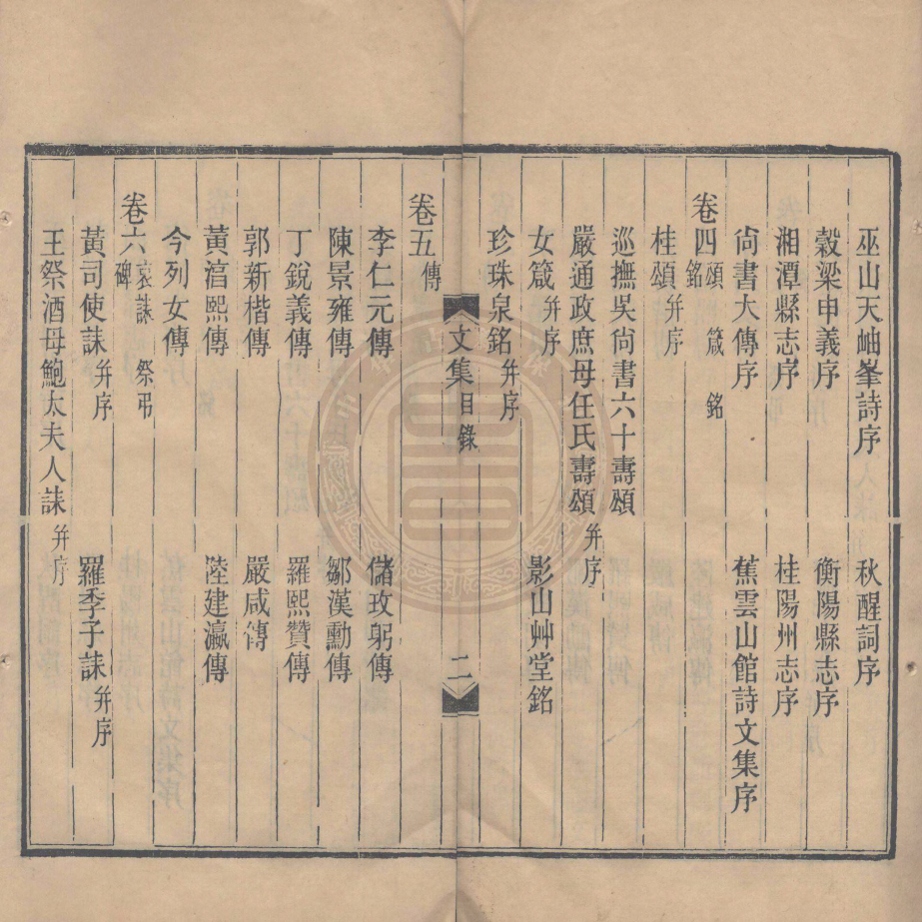 巫山天岫峯詩序　秋醒詞序
穀梁申義序　衡陽縣志序
湘潭縣志序　桂陽州志序
尙書大傳序　蕉雲山館詩文集序
卷四 頌 箴 銘 銘
桂頌 幷序
巡撫吳尙書六十壽頌
嚴通政庶母任氏壽頌 幷序
女箴 幷序　影山艸堂銘
珍珠泉銘 幷序
文集 目錄 二
卷五 傳
李仁元傳　儲玫躬傳
陳景雍傳　鄒漢勳傳
丁銳義傳　羅熙贊傳
郭新楷傳　嚴咸傳
黃淯熙傳　陸建瀛傳
今列女傳
卷六 哀誄 祭弔 碑
黃司使誄 幷序　羅季子誄 幷序
王祭酒母鮑太夫人誄 幷序